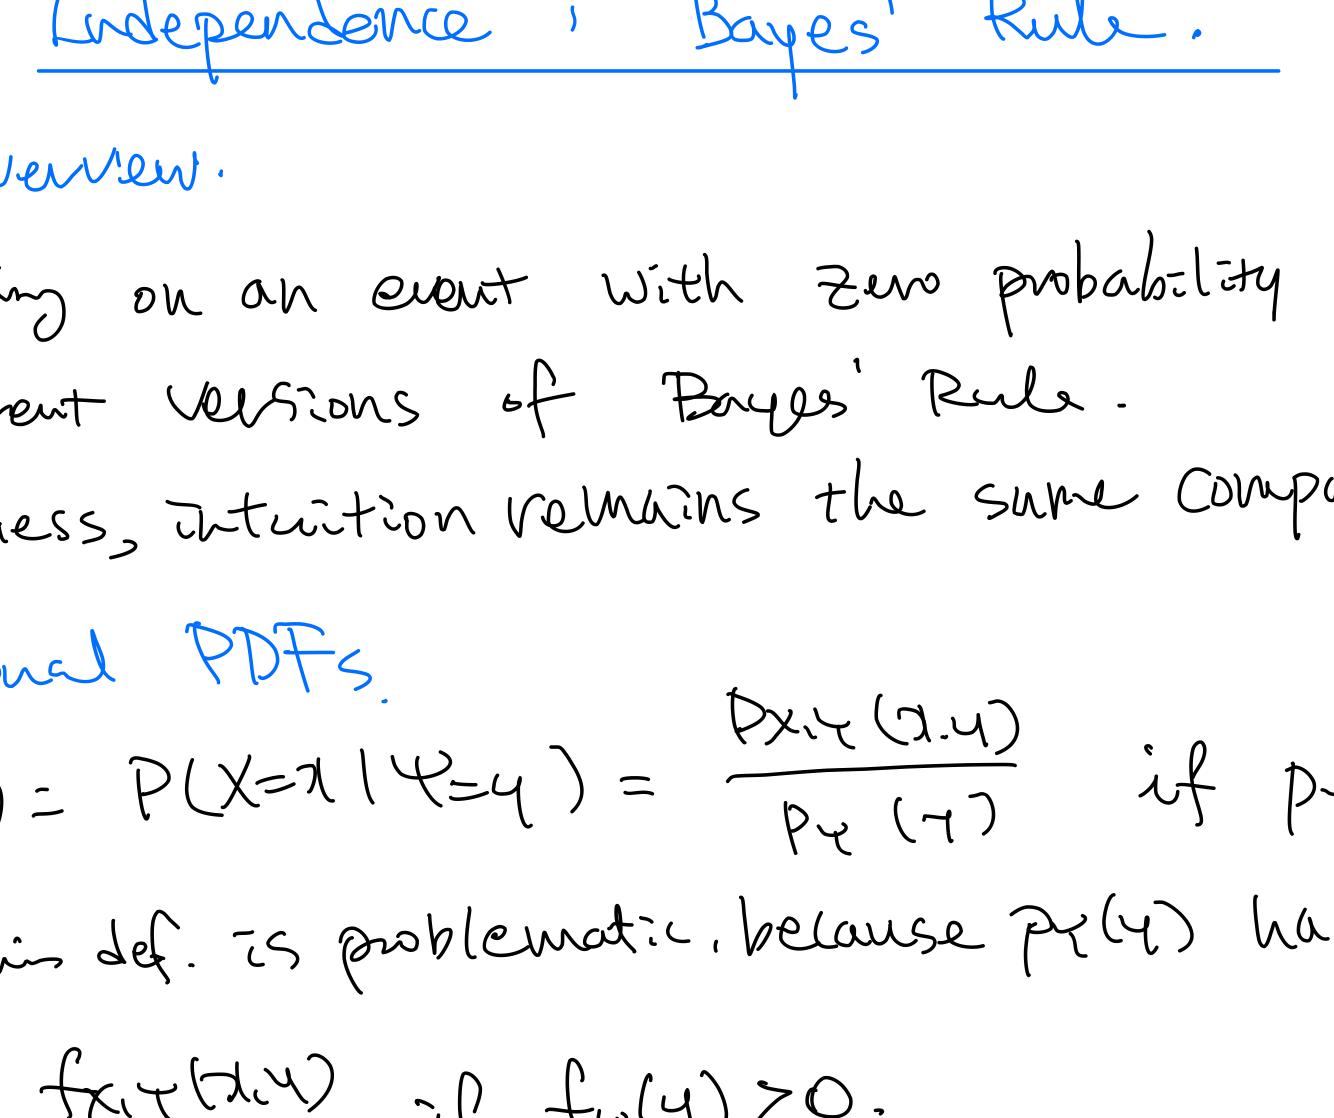 Independence ; Bayes' Rule.
verview.
ing on an event with zero probability
rent versions of Bayes' Rule.
ness, intuition remains the same compa
onal PDFs.
) = P(X=x | Y=y) = pX,Y (x,y) / pY (y) if p
def. is problematic, because pY(y) ha
fX,Y(x,y) if fY(y) >0.